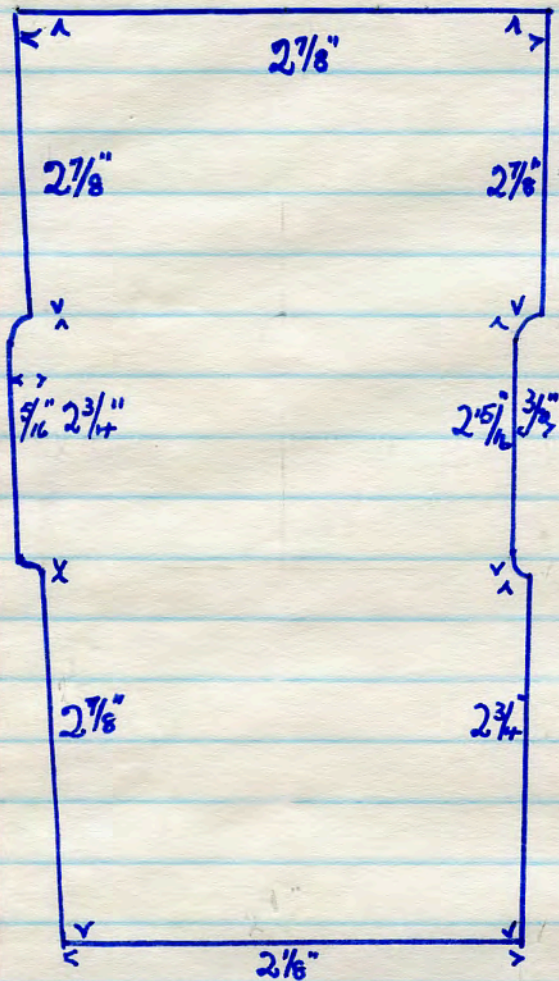 2 7/8"
2 7/8" 2 7/8"
5/16" 2 3/4" 2 15/16" 3/8"
2 7/8" 2 3/4"
2 1/8"